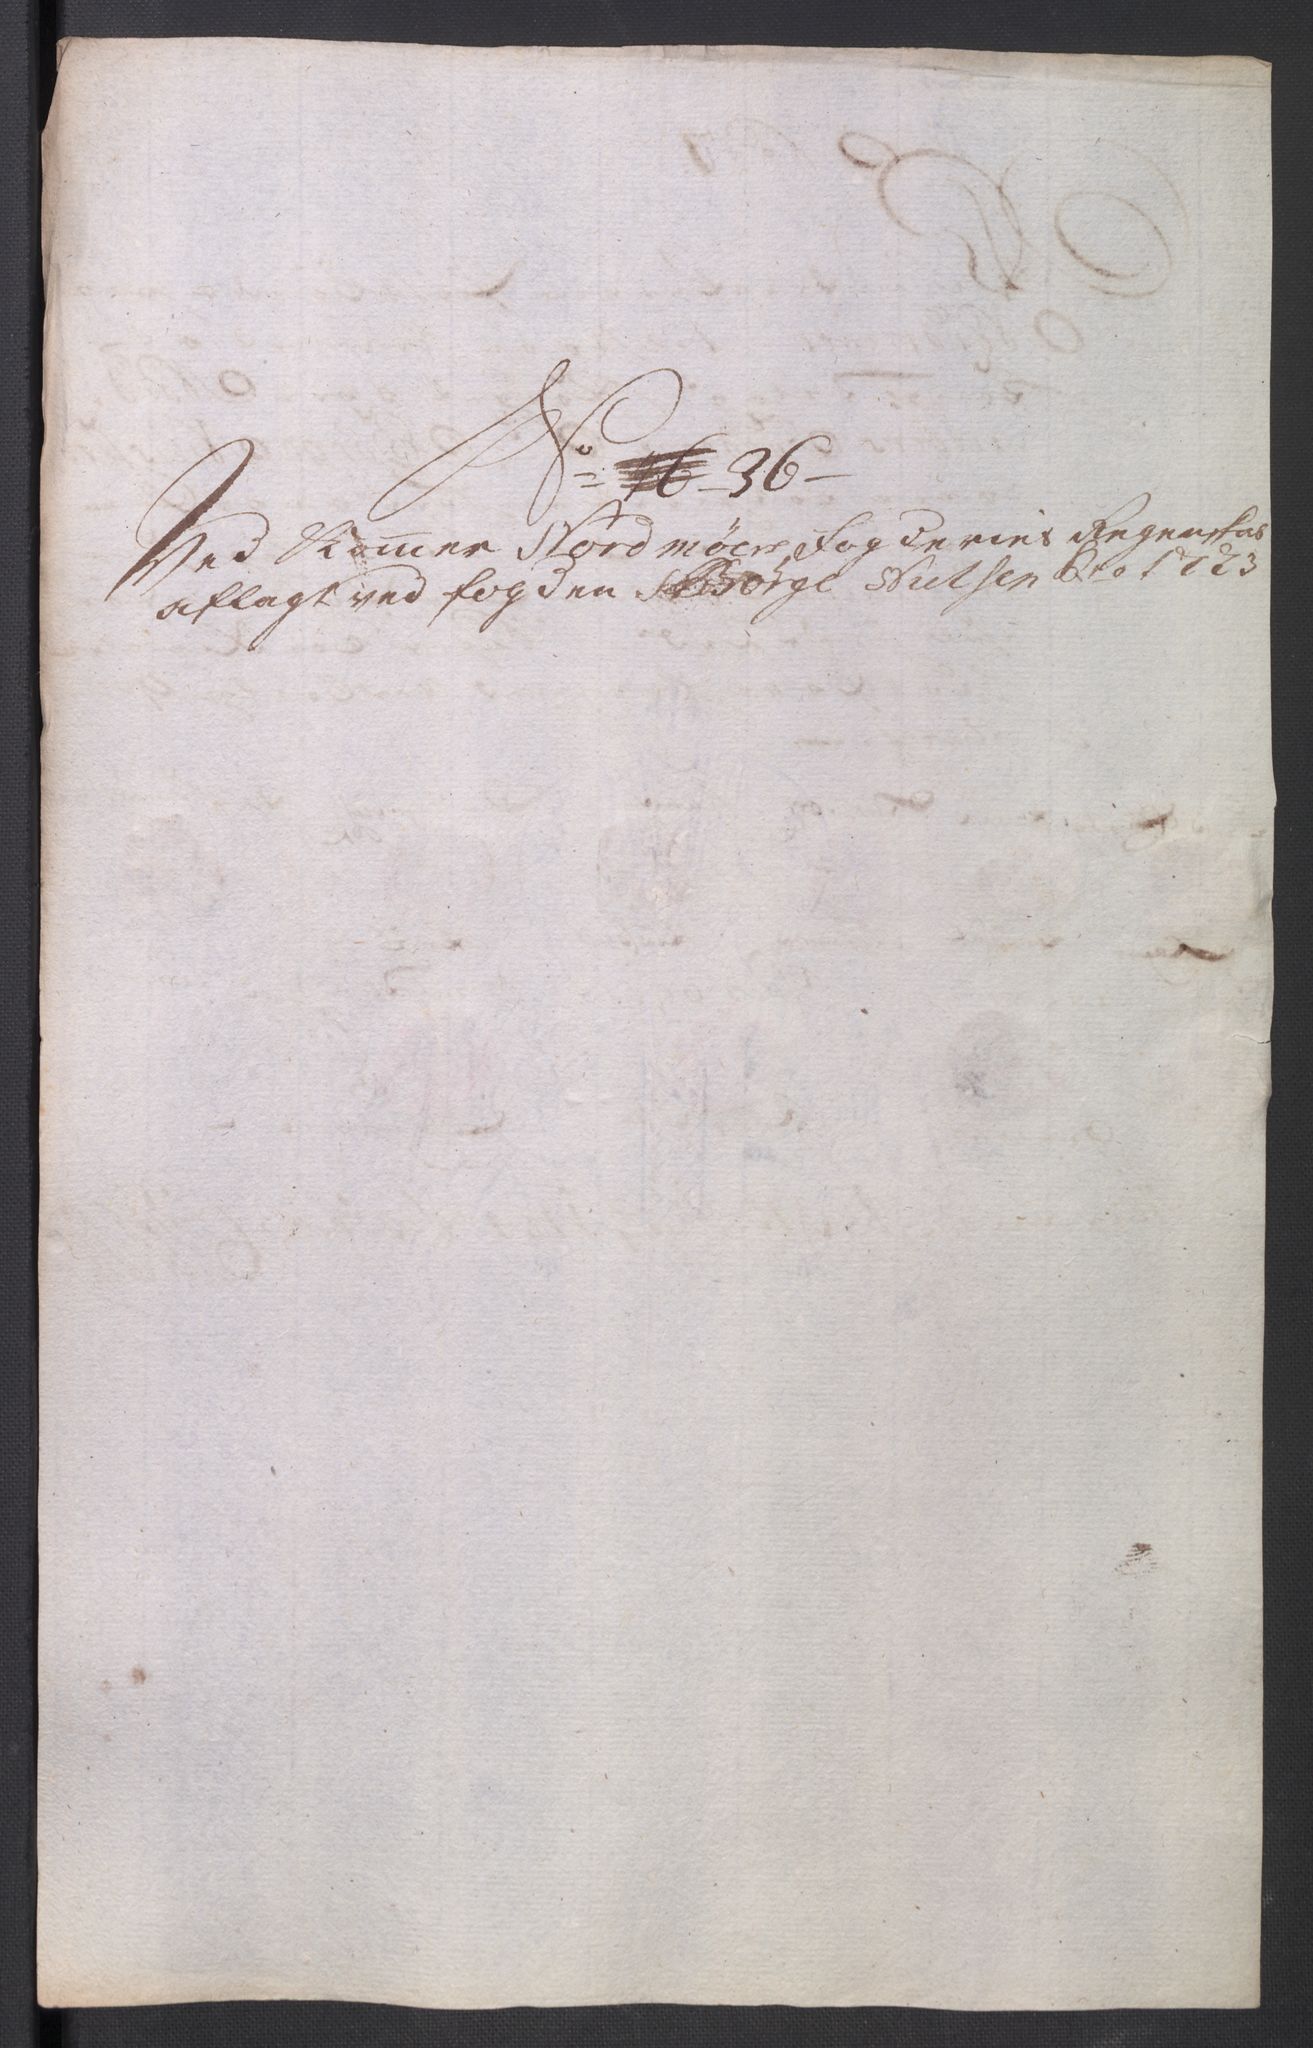 No: 36
Ved Kommer Nordmøers fogderies Regenskab
aflagt ved fogden Sr Børge Nielsen pro 1723